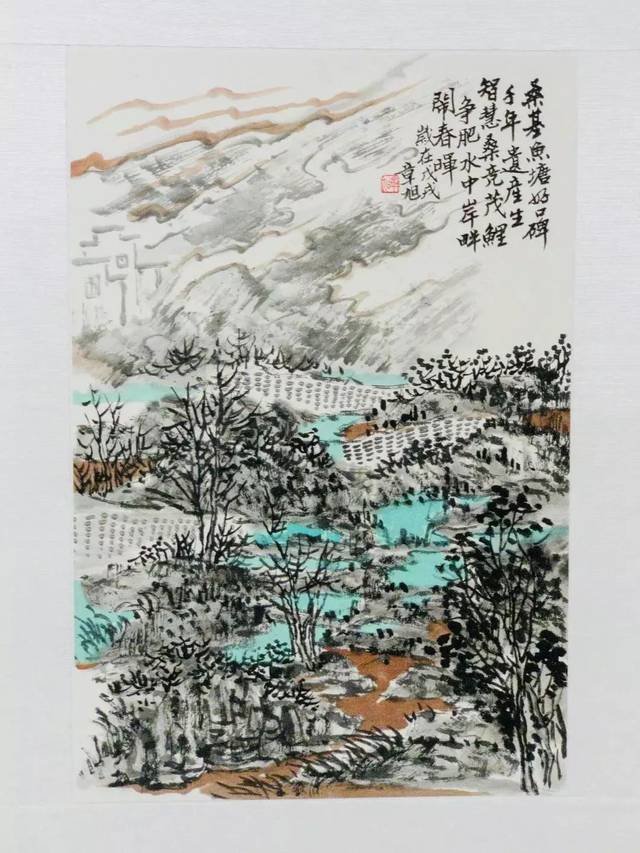 桑基魚塘好口碑
千年遺産生
智慧桑竞茂鯉
争肥水中岸畔
鬧春暉
歲在戊戌
章旭